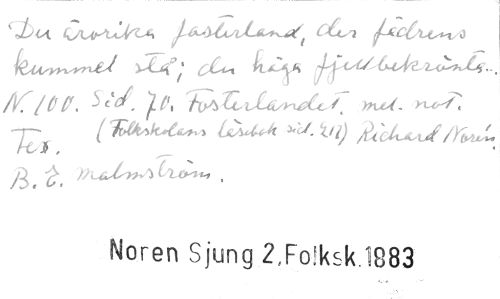 Du ärorika fosterland, der fädrens
kummel stå; du höga fjellbekrönta...
N. 100. Sid. 70. Fosterlandet. med not.
(Folkskolans läsebok sid. 217) Richard Norén.
Tex.
B. E. Malmström.
Noren Sjung 2, Folksk. 1883